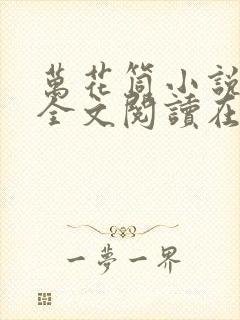 萬花筒小說
全文閱讀在
一夢一界